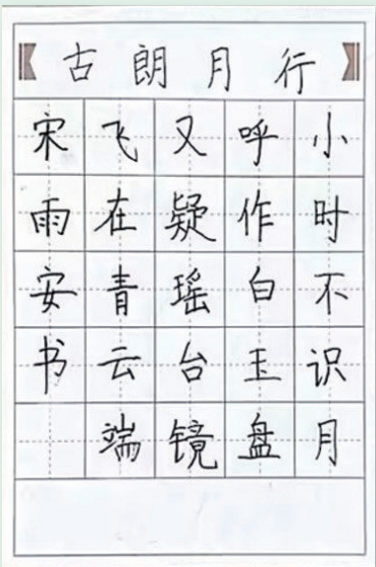 古朗月行
小时不识月
呼作白玉盘
又疑瑶台镜
飞在青云端
宋雨安书